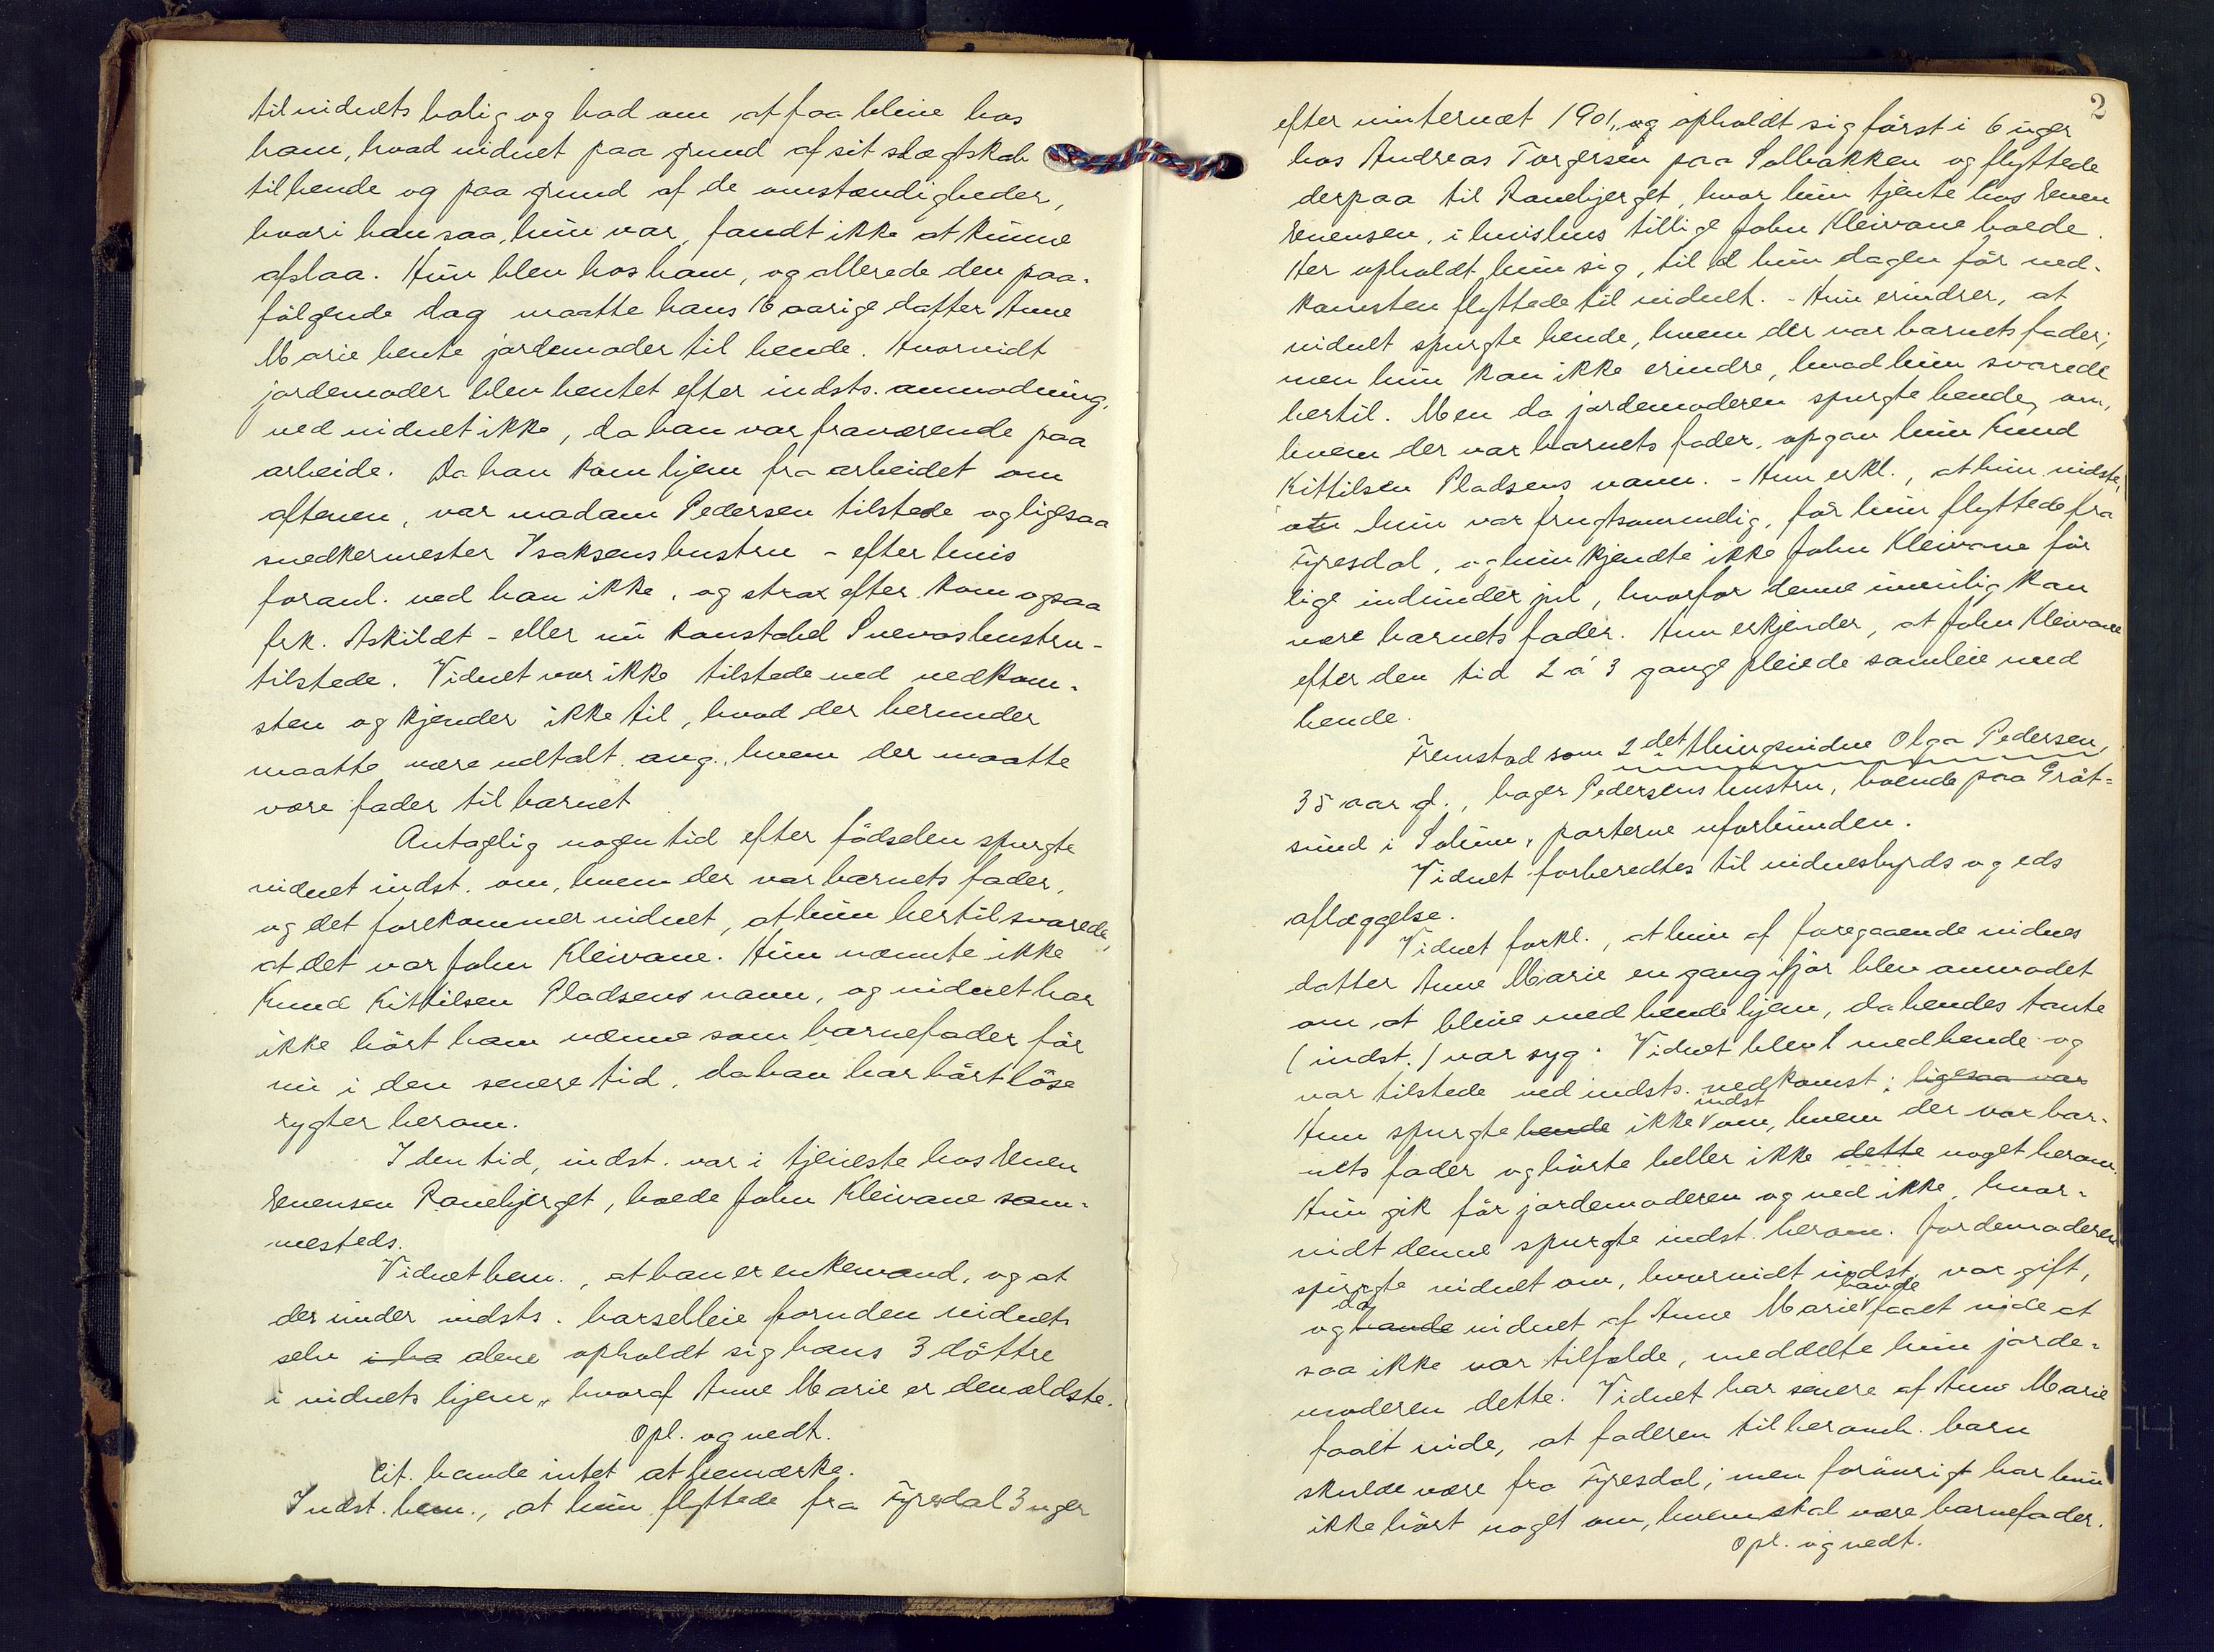 til vidnets bolig og bad om at faa blive hos
ham, hvad vidnet paa grund af sit slægtskab
til hende og paa grund af de omstændigheder,
hvori han saa, hun var, fandt ikke at kunne
afslaa. Hun blev hos ham, og allerede den paa-
følgende dag maatte hans 16 aarige datter Anne
Marie hente jordemoder til hende. Hvorvidt
jordemoder blev hentet efter indsts. anmodning,
ved vidnet ikke, da han var fraværende paa
arbeide. Da han kom hjem fra arbeidet om
aftenen, var madam Pedersen tilstede og ligesaa
snedkermester Isaksens hustru - efter hvis
foranl. ved han ikke, og strax efter kom ogsaa
frk. Askildt - eller nu konstabel Svevas hustru -
tilstede. Vidnet var ikke tilstede ved nedkom-
sten og kjender ikke til, hvad der herunder
maatte være udtalt ang., hvem der maatte
være fader til barnet
Antagelig nogen tid efter fødselen spurgte
vidnet indst. om, hvem der var barnets fader,
og det forekommer vidnet, at hun hertil svarede,
at det var John Kleivane. Hun nævnte ikke
Knud Kittilsen Pladsens navn, og vidnet har
ikke hørt ham nævne som barnefader før
nu i den senere tid, da han har hørt løse
rygter herom.
I den tid, indst. var i tjeneste hos Even
Evensen Ranebjerget, boede John Kleivane sam-
mesteds.
Vidnet bem., at han er enkemand, og at
der under indsts. barselleie foruden vidnet
selv i ha alene opholdt sig hans 3 døttre
i vidnets hjem, hvoraf Anne Marie er den ældste.
Opl. og vedt.
Cit. havde intet at bemærke.
Indst. bem., at hun flyttede fra Fyresdal 3 uger
2
efter vinternat 1901, og opholdt sig først i 6 uger
hos Andreas Torgersen paa Solbakken og flyttede
derpaa til Ranebjerget, hvor hun tjente hos Even
Evensen, i hvis hus tillige John Kleivane boede.
Her opholdt hun sig, til hun dagen før ned-
komsten flyttede til vidnet. - Hun erindrer, at
vidnet spurgte hende, hvem der var barnets fader;
men hun kan ikke erindre, hvad hun svarede
hertil. Men da jordemoderen spurgte hende, om,
hvem der var barnets fader, opgav hun Knud
Kittilsen Pladsens navn. - Hun erkl., at hun vidste,
at hun var frugtsommelig, før hun flyttede fra
Fyresdal, og hun kjendte ikke John Kleivane før
lige indunder jul, hvorfor denne umulig kan
være barnets fader. Hun erkjender, at John Kleivane
efter den tid 2 á 3 gange pleiede samleie med
hende.
Fremstod som 2det thingsvidne Olga Pedersen,
35 aar gl., bager Pedersens hustru, boende paa Gråt-
sund i Solum, parterne uforbunden.
Vidnet forberedtes til vidnesbyrds og eds
aflæggelse.
Vidnet forkl., at hun af foregaaende vidnes
datter Anne Marie en gang ifjor blev anmodet
om at blive med hende hjem, da hendes tante
(indst.) var syg. Vidnet blev med hende og
var tilstede ved indsts. nedkomst; ligesaa var
Hun spurgte hende ikke indst om, hvem der var bar-
nets fader og hørte heller ikke dette noget herom.
Hun gik før jordemoderen og ved ikke, hvor-
vidt denne spurgte indst. herom. Jordemoderen
spurgte vidnet om, hvorvidt indst. var gift,
og da havde vidnet af Anne Marie havde faaet vide at
saa ikke var tilfælde, meddelte hun jorde-
moderen dette. Vidnet har senere af Anne Marie
faaet vide, at faderen til heromh. barn
skulde være fra Fyresdal; men forøvrigt har hun
ikke hørt noget om, hvem skal være barnefader.
Opl. og vedt.